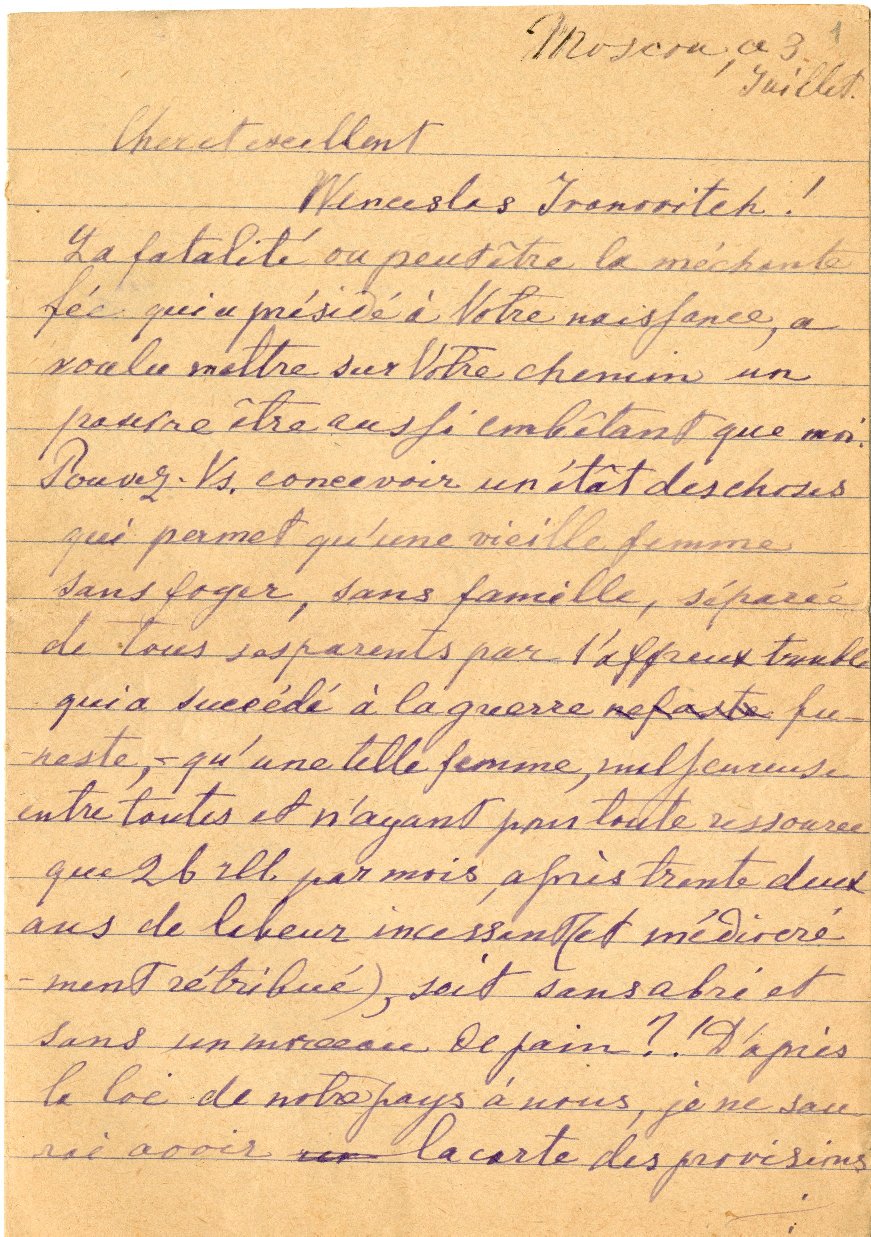 1
Moscou, ce 3
Juillet.
Cher et excellent
Wenceslas Ivanovitch!
La fatalité ou peut être la méchante
fée qui a présidé à Votre naissance, a
voulu mettre sur Votre chemin un
pauvre être aussi embêtant que moi.
Pouvez-Vs. concevoir un état des choses
qui permet qu'une vieille femme
sans foyer, sans famille, séparée
de tous ses parents par l'affreux trouble
qui a succédé à la guerre nefaste fu-
-neste, - qu'une telle femme, malheureuse
entre toutes et n'ayant pour toute ressource
que 26 rbl. par mois, après trente deux
ans de labeur incessant (et médiocré
-ment rétribué), soit sans abri et
sans un morceau de pain?! D'après
la loi de notre pays à nous, je ne sau
rai avoir la carte des provisions